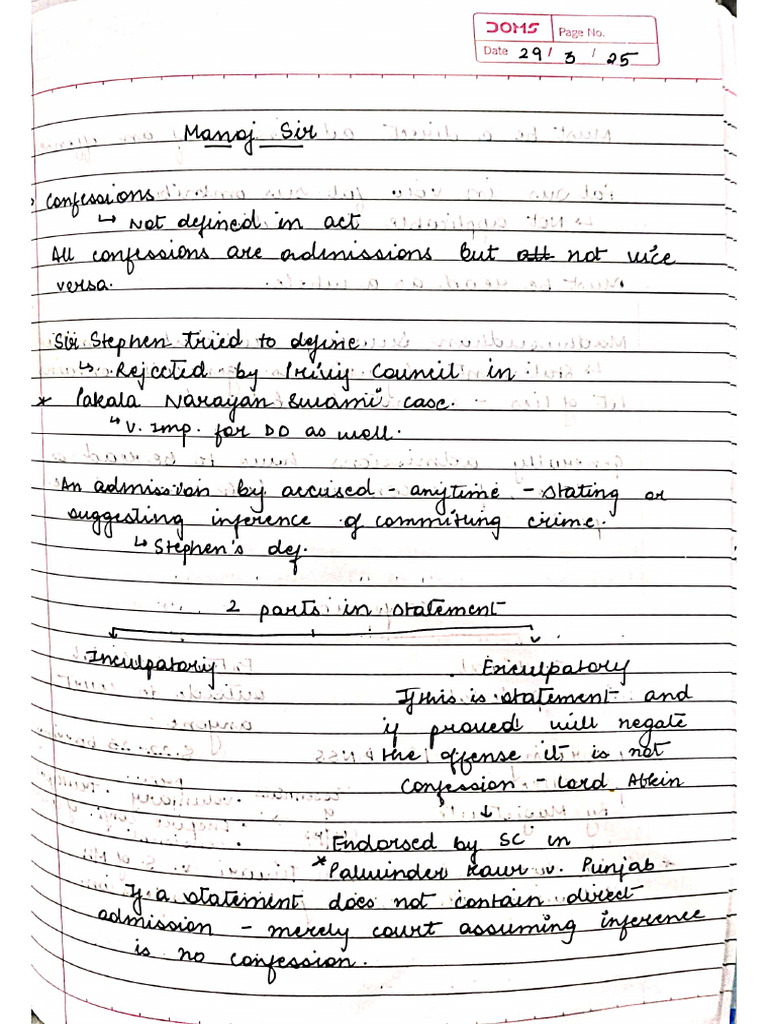 DOMS Page No.
Date 29 / 3 / 25
Manoj Sir
Confessions
↳ Not defined in act
All confessions are admissions but all not vice
versa.
Sir Stephen tried to define
↳ Rejected by Privy Council in
* Pakala Narayan Swami case.
↳ V. Imp. for DD as well.
An admission by accused - anytime - stating or
suggesting inference of committing crime.
↳ Stephen's def.
2 parts in statement
Inculpatory Exculpatory
If this is statement and
if proved will negate
the offense it is not
Confession - Lord Atkin
↓
Endorsed by SC in
* Palwinder Kaur v. Punjab
If a statement does not contain direct
admission - merely court assuming inference
is no confession.